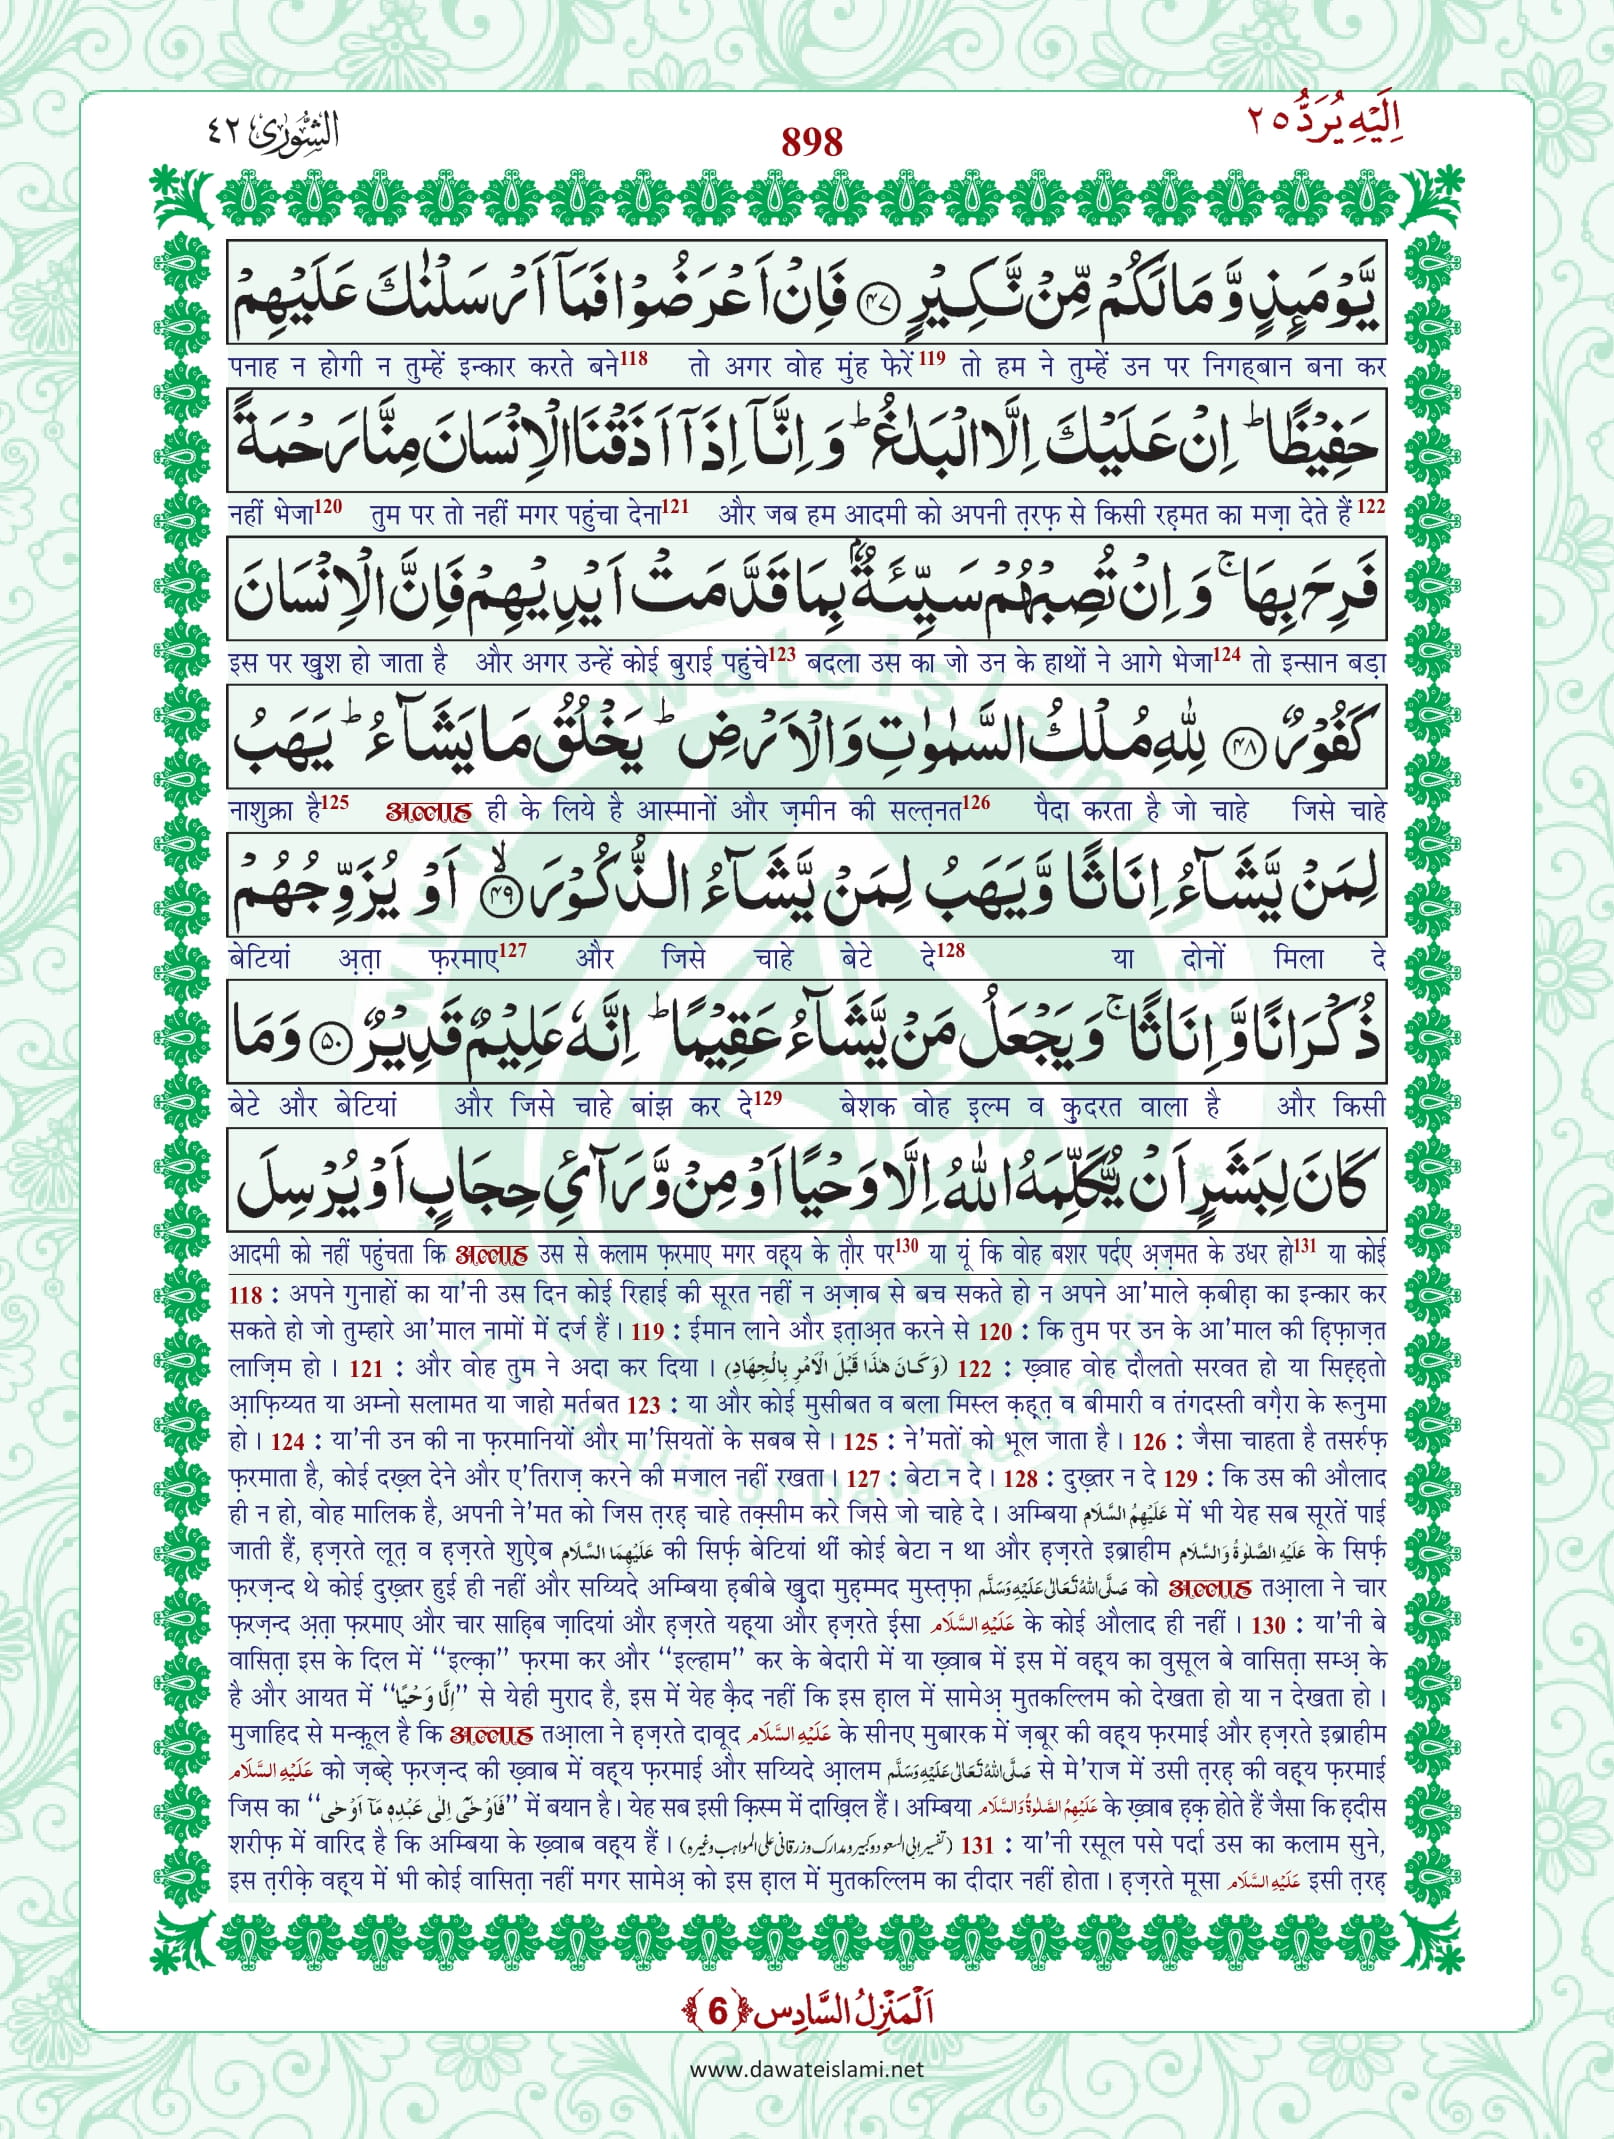 اَلشُّوْرٰی ٤٢
898
اِلَيْهِ يُرَدُّ ٢٥
يَّوْمَىِٕذٍ وَّ مَا لَكُمْ مِّنْ نَّكِيْرٍ ﴿۴۷﴾ فَاِنْ اَعْرَضُوْا فَمَاۤ اَرْسَلْنٰكَ عَلَيْهِمْ
पनाह न होगी न तुम्हें इन्कार करते बने118 तो अगर वोह मुंह फेरें119 तो हम ने तुम्हें उन पर निगह्बान बना कर
حَفِيْظًا ؕ اِنْ عَلَيْكَ اِلَّا الْبَلٰغُ ؕ وَ اِنَّاۤ اِذَاۤ اَذَقْنَا الْاِنْسَانَ مِنَّا رَحْمَةً
नहीं भेजा120 तुम पर तो नहीं मगर पहुंचा देना121 और जब हम आदमी को अपनी त़रफ़ से किसी रह़मत का मज़ा देते हैं122
فَرِحَ بِهَا ۚ وَ اِنْ تُصِبْهُمْ سَيِّئَةٌۢ بِمَا قَدَّمَتْ اَيْدِيْهِمْ فَاِنَّ الْاِنْسَانَ
इस पर खुश हो जाता है और अगर उन्हें कोई बुराई पहुंचे123 बदला उस का जो उन के हाथों ने आगे भेजा124 तो इन्सान बड़ा
كَفُوْرٌ ﴿۴۸﴾ لِلّٰهِ مُلْكُ السَّمٰوٰتِ وَ الْاَرْضِ ؕ يَخْلُقُ مَا يَشَآءُ ؕ يَهَبُ
नाशुक्रा है125 अल्लाह ही के लिये है आस्मानों और ज़मीन की सल्त़नत126 पैदा करता है जो चाहे जिसे चाहे
لِمَنْ يَّشَآءُ اِنَاثًا وَّ يَهَبُ لِمَنْ يَّشَآءُ الذُّكُوْرَ ۙ﴿۴۹﴾ اَوْ يُزَوِّجُهُمْ
बेटियां अ़त़ा फ़रमाए127 और जिसे चाहे बेटे दे128 या दोनों मिला दे
ذُكْرَانًا وَّ اِنَاثًا ۚ وَ يَجْعَلُ مَنْ يَّشَآءُ عَقِيْمًا ؕ اِنَّهٗ عَلِيْمٌ قَدِيْرٌ ﴿۵۰﴾ وَ مَا
बेटे और बेटियां और जिसे चाहे बांझ कर दे129 बेशक वोह इल्म व कुदरत वाला है और किसी
كَانَ لِبَشَرٍ اَنْ يُّكَلِّمَهُ اللّٰهُ اِلَّا وَحْيًا اَوْ مِنْ وَّرَآئِ حِجَابٍ اَوْ يُرْسِلَ
आदमी को नहीं पहुंचता कि अल्लाह उस से कलाम फ़रमाए मगर वह़्य के त़ौर पर130 या यूं कि वोह बशर पर्दए अ़ज़मत के उधर हो131 या कोई
118 : अपने गुनाहों का या'नी उस दिन कोई रिहाई की सूरत नहीं न अ़ज़ाब से बच सकते हो न अपने आ'माले क़बीह़ा का इन्कार कर
सकते हो जो तुम्हारे आ'माल नामों में दर्ज हैं। 119 : ईमान लाने और इत़ाअ़त करने से 120 : कि तुम पर उन के आ'माल की हि़फ़ाज़त
लाज़िम हो। 121 : और वोह तुम ने अदा कर दिया। (وَكَانَ هٰذَا قَبْلَ الْاَمْرِ بِالْجِهَادِ) 122 : ख़्वाह वोह दौलतो सरवत हो या सिह़्ह़तो
आ़फ़िय्यत या अम्नो सलामत या जाहो मर्तबत 123 : या और कोई मुसीबत व बला मिस्ल क़ह़्त़ व बीमारी व तंगदस्ती वग़ैरा के रूनुमा
हो। 124 : या'नी उन की ना फ़रमानियों और मा'सियतों के सबब से। 125 : ने'मतों को भूल जाता है। 126 : जैसा चाहता है तसर्रुफ़
फ़रमाता है, कोई दख़्ल देने और ए'तिराज़ करने की मजाल नहीं रखता। 127 : बेटा न दे। 128 : दुख़्तर न दे 129 : कि उस की औलाद
ही न हो, वोह मालिक है, अपनी ने'मत को जिस त़रह़ चाहे तक़्सीम करे जिसे जो चाहे दे। अम्बिया عَلَيْهِمُ السَّلَام में भी येह सब सूरतें पाई
जाती हैं, ह़ज़रते लूत़ व ह़ज़रते शुऐ़ब عَلَيْهِمَا السَّلَام की सिर्फ़ बेटियां थीं कोई बेटा न था और ह़ज़रते इब्राहीम عَلَيْهِ الصَّلٰوةُ وَالسَّلَام के सिर्फ़
फ़रज़न्द थे कोई दुख़्तर हुई ही नहीं और सय्यिदे अम्बिया ह़बीबे खुदा मुह़म्मद मुस्त़फ़ा صَلَّى اللهُ تَعَالٰى عَلَيْهِ وَسَلَّم को अल्लाह तआ़ला ने चार
फ़रज़न्द अ़त़ा फ़रमाए और चार साहि़ब ज़ादियां और ह़ज़रते यह़्या और ह़ज़रते ईसा عَلَيْهِ السَّلَام के कोई औलाद ही नहीं। 130 : या'नी बे
वासित़ा इस के दिल में ‘‘इल्क़ा’’ फ़रमा कर और ‘‘इल्हाम’’ कर के बेदारी में या ख़्वाब में इस में वह़्य का वुसूल बे वासित़ा सम्अ़ के
है और आयत में ‘‘اِلَّا وَحْيًا’’ से येही मुराद है, इस में येह क़ैद नहीं कि इस ह़ाल में सामेअ़ मुतकल्लिम को देखता हो या न देखता हो।
मुजाहिद से मन्क़ूल है कि अल्लाह तआ़ला ने ह़ज़रते दावूद عَلَيْهِ السَّلَام के सीनए मुबारक में ज़बूर की वह़्य फ़रमाई और ह़ज़रते इब्राहीम
عَلَيْهِ السَّلَام को ज़ब्ह़े फ़रज़न्द की ख़्वाब में वह़्य फ़रमाई और सय्यिदे आ़लम صَلَّى اللهُ تَعَالٰى عَلَيْهِ وَسَلَّم से मे'राज में उसी त़रह़ की वह़्य फ़रमाई
जिस का ‘‘فَاَوْحٰۤى اِلٰى عَبْدِهٖ مَاۤ اَوْحٰى’’ में बयान है। येह सब इसी क़िस्म में दाख़िल हैं। अम्बिया عَلَيْهِمُ الصَّلٰوةُ وَالسَّلَام के ख़्वाब ह़क़ होते हैं जैसा कि ह़दीस
शरीफ़ में वारिद है कि अम्बिया के ख़्वाब वह़्य हैं। (تفسیر ابی السعود و کبیر و مدارک و زرقانی علی المواہب وغیرہ) 131 : या'नी रसूल पसे पर्दा उस का कलाम सुने,
इस त़रीक़े वह़्य में भी कोई वासित़ा नहीं मगर सामेअ़ को इस ह़ाल में मुतकल्लिम का दीदार नहीं होता। ह़ज़रते मूसा عَلَيْهِ السَّلَام इसी त़रह़
اَلْمَنْزِلُ السَّادِس ﴿6﴾
www.dawateislami.net